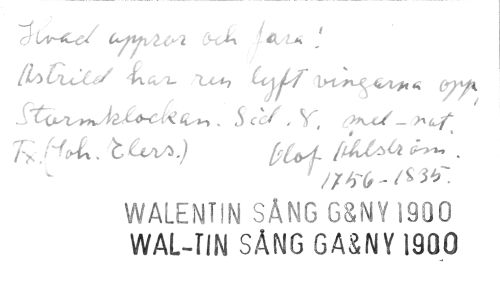 Hvad uppror och fara!
Astrild har ren lyft vingarna opp,
Stormklockan. Sid. 8. mel-not.
Tx. (Joh. Elers.) Olof Åhlström.
1756-1835.
WALENTIN SÅNG G&NY 1900
WAL-TIN SÅNG GA&NY 1900